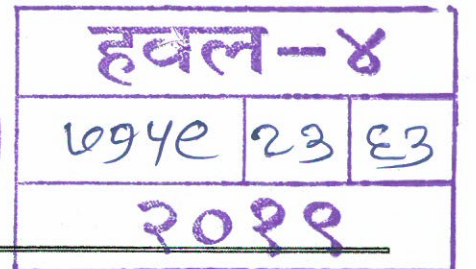 हवल-४
७१५९ २३ ६३
२०१९